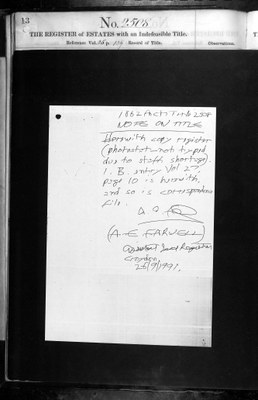 13
No. 2508
THE REGISTER of ESTATES with an Indefeasible Title.
Reference Vol. p. Record of Title. Observations.
1862 Act Title 2508
NOTES ON TITLE
Herewith copy register
(photostat—not typed
due to staff shortage).
I. B. entry Vol 27
page 10 is herewith,
and so is correspondence
file.
(A E FARVELL)
Assistant Land Registrar,
Croydon,